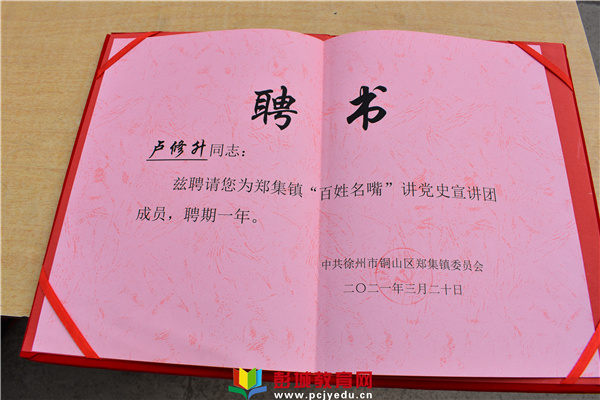 聘书
卢修升同志：
兹聘请您为郑集镇“百姓名嘴”讲党史宣讲团
成员，聘期一年。
中共徐州市铜山区郑集镇委员会
二〇二一年三月二十日
彭城教育网
www.pcjyedu.cn